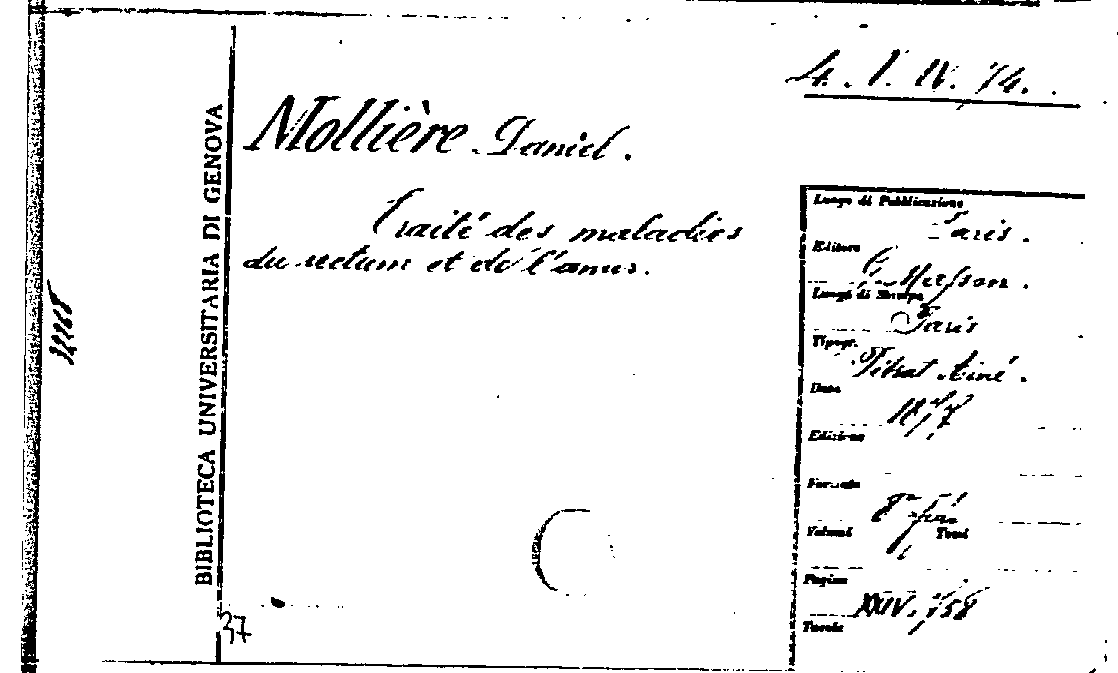 4. I. IV. 74.
Mollière Daniel.
Traité des maladies
du rectum et de l'anus.
BIBLIOTECA UNIVERSITARIA DI GENOVA
37
Luogo di Pubblicazione
Paris.
Editore
G. Masson.
Luogo di Stampa
Paris
Tipogr.
Pitrat Ainé.
Data
1877
Edizione
Formato
8°
Volumi Tomi
1
Pagine
XXIV. 758
Tavole